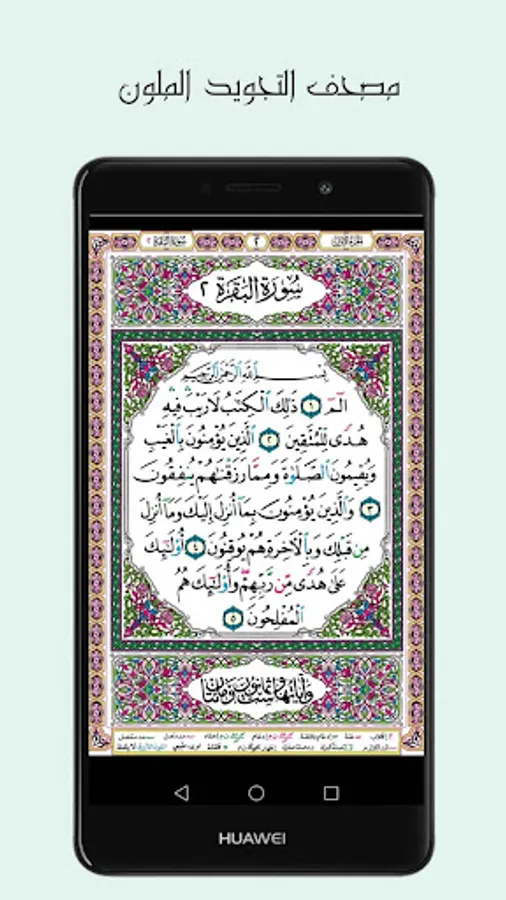 مصحف التجويد الملون
سُورَةُ البَقَرَة ٢
٢
الجزء الأول
سُورَةُ البَقَرَةِ ٢
بِسْمِ اللَّهِ الرَّحْمَٰنِ الرَّحِيمِ
الٓمٓ ١ ذَٰلِكَ ٱلْكِتَٰبُ لَا رَيْبَ فِيهِ
هُدًى لِّلْمُتَّقِينَ ٢ ٱلَّذِينَ يُؤْمِنُونَ بِٱلْغَيْبِ
وَيُقِيمُونَ ٱلصَّلَوٰةَ وَمِمَّا رَزَقْنَٰهُمْ يُنفِقُونَ
٣ وَٱلَّذِينَ يُؤْمِنُونَ بِمَآ أُنزِلَ إِلَيْكَ وَمَآ أُنزِلَ
مِن قَبْلِكَ وَبِٱلْءَاخِرَةِ هُمْ يُوقِنُونَ ٤ أُو۟لَٰٓئِكَ
عَلَىٰ هُدًى مِّن رَّبِّهِمْ وَأُو۟لَٰٓئِكَ هُمُ
ٱلْمُفْلِحُونَ ٥
وَآيَاتُهَا سِتٌّ وَثَمَانُونَ وَمِائَتَانِ
HUAWEI